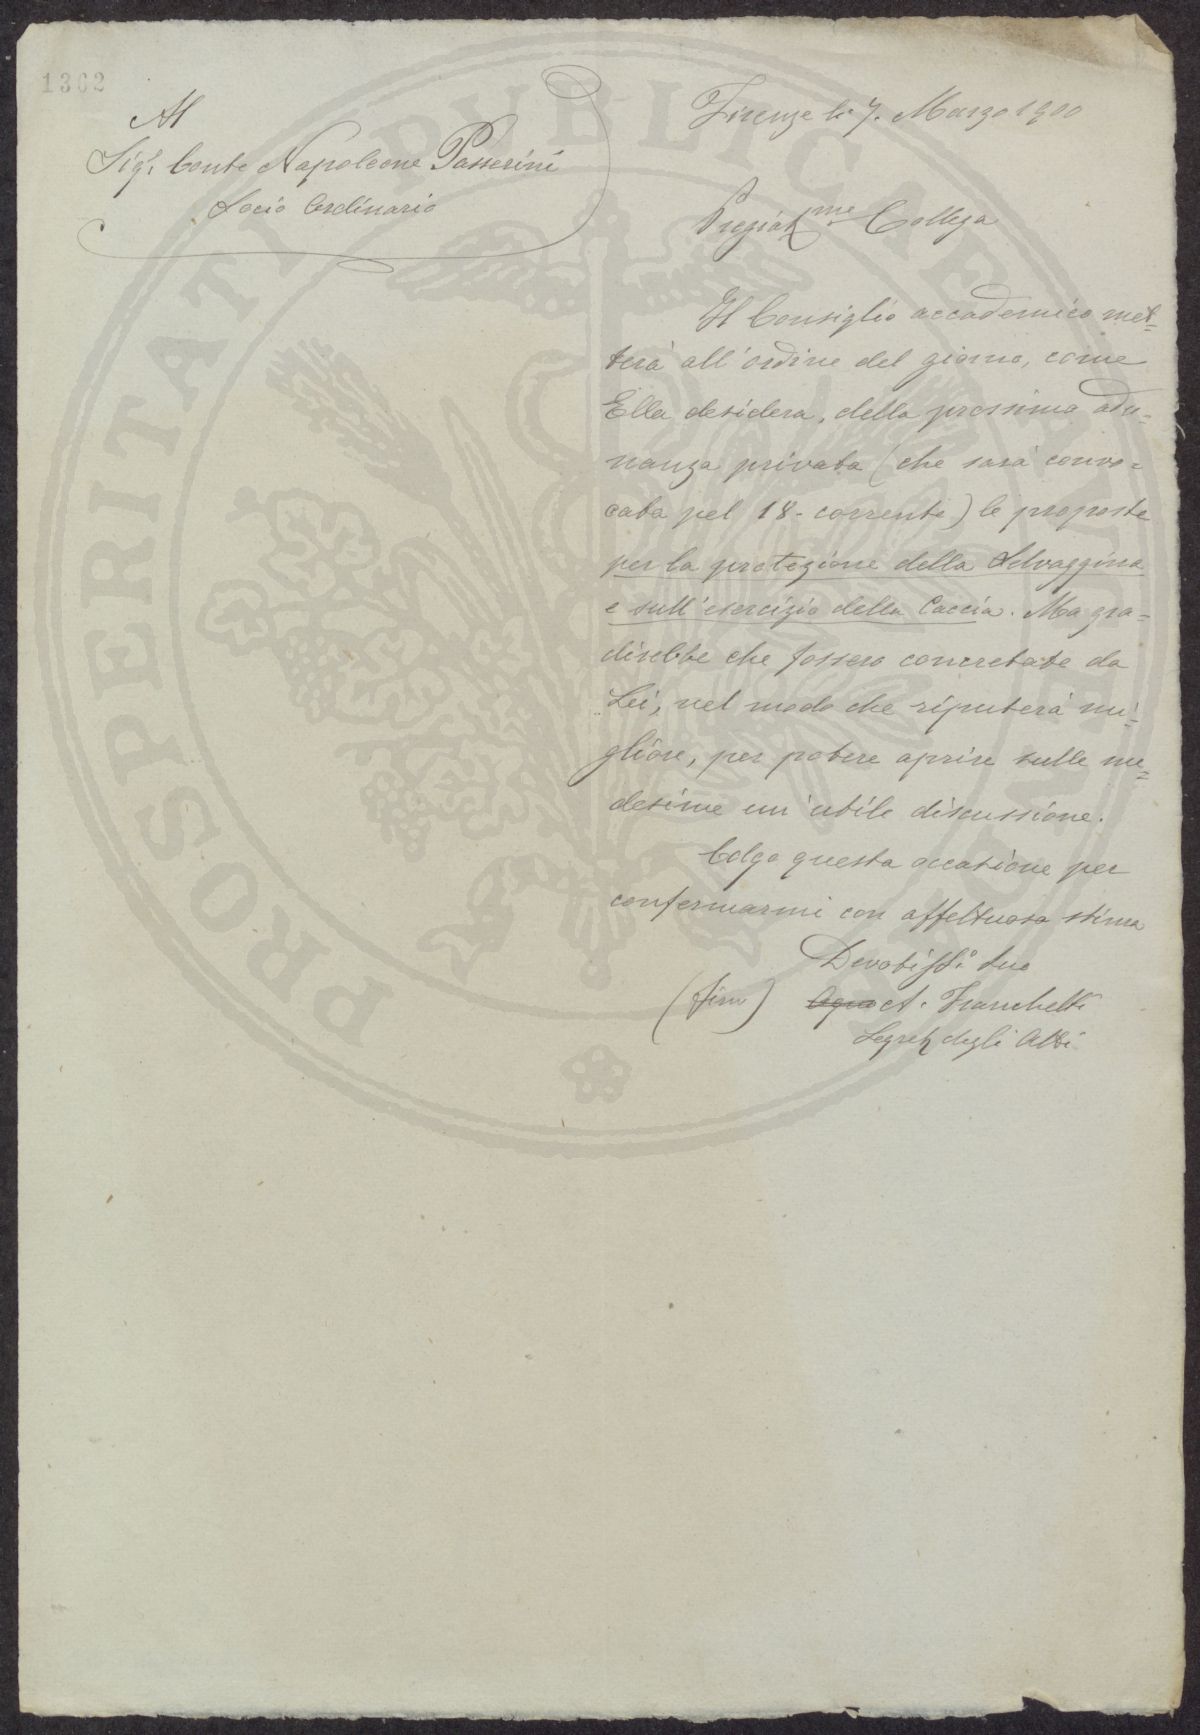 1362
Al
Sigr Conte Napoleone Passerini
Socio Ordinario
Firenze li 7. Marzo 1900
Pregiatme Collega
Il Consiglio accademico met=
terà all'ordine del giorno, come
Ella desidera, della prossima adu=
nanza privata (che sarà convo=
cata pel 18. corrente) le proposte
per la protezione della Selvaggina
e sull'esercizio della Caccia. Ma gra=
direbbe che fossero concretate da
Lei, nel modo che riputerà mi=
gliore, per potere aprire sulle me=
desime un'utile discussione.
Colgo questa occasione per
confermarmi con affettuosa stima
Devotissio suo
(firm) A. Franchetti
Segret degli Atti
PROSPERITATI PUBLICAE